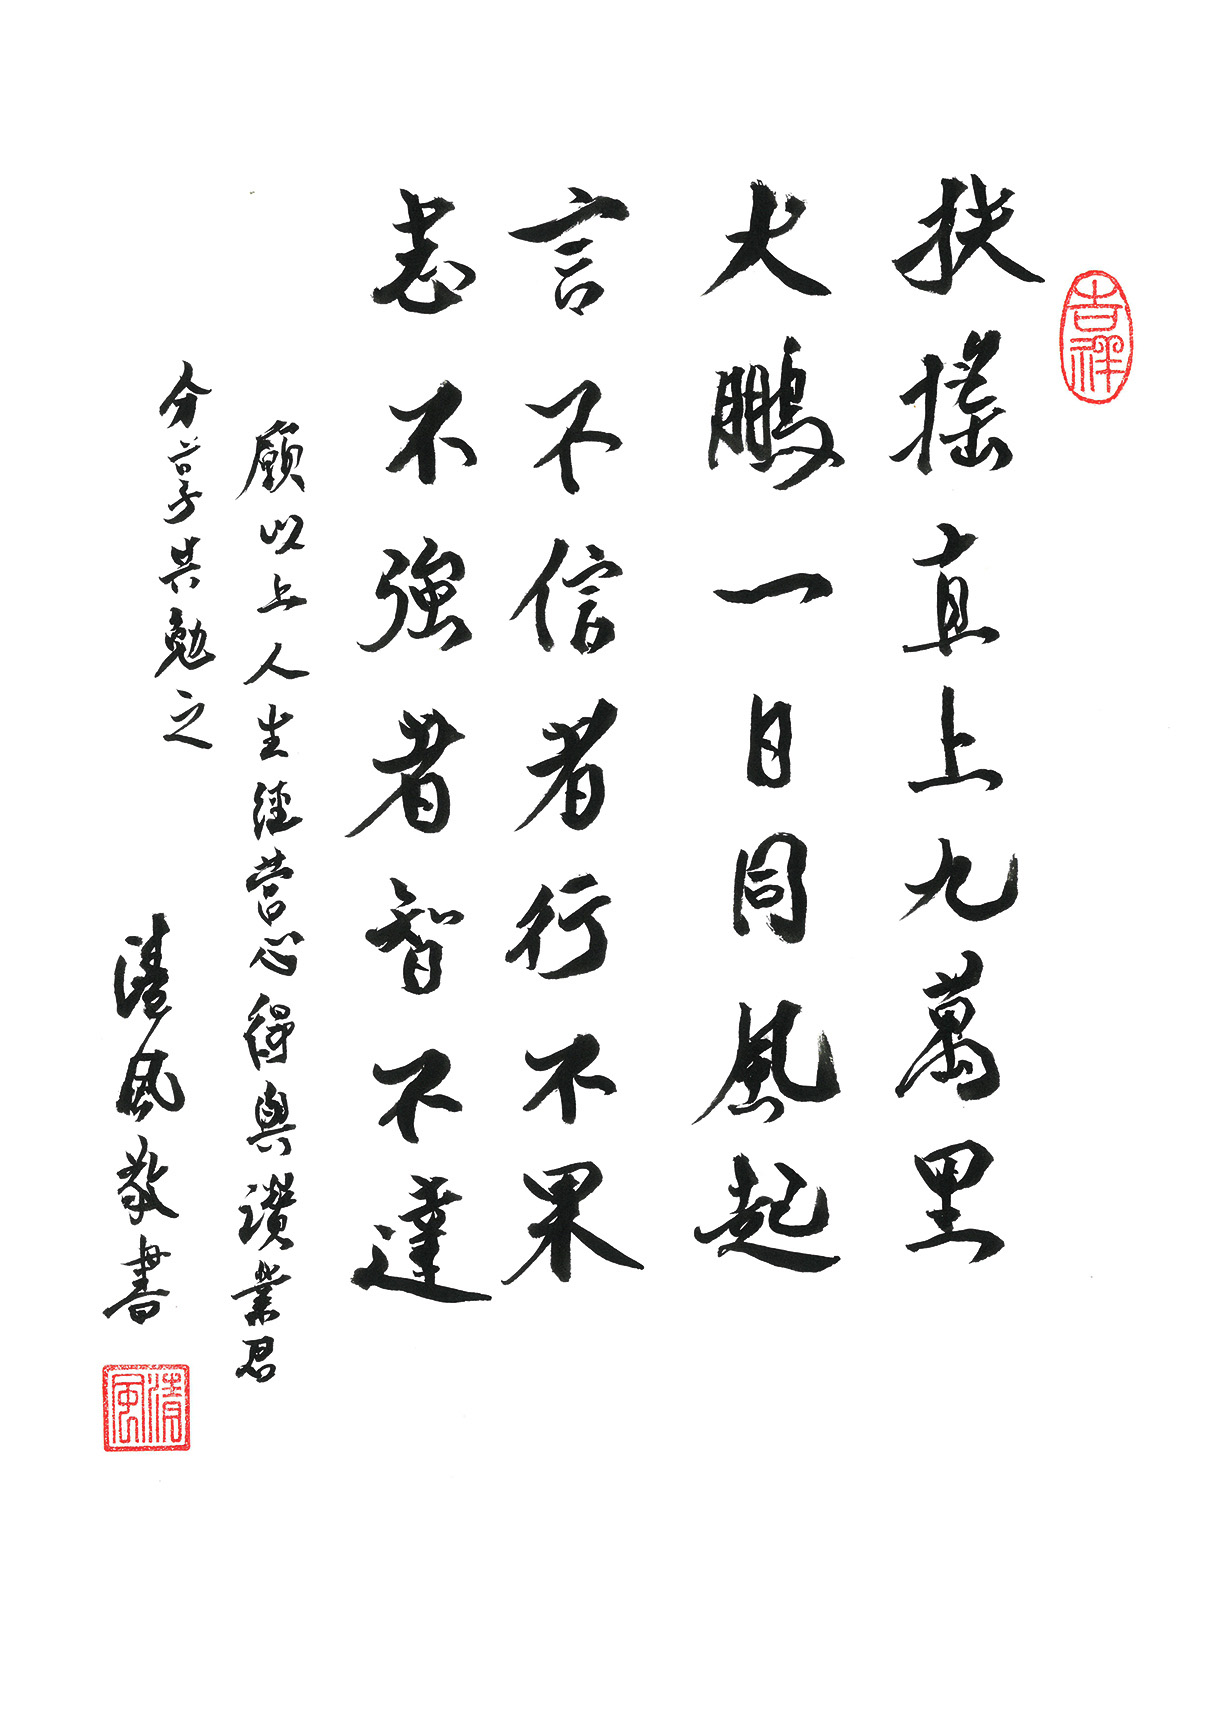 吉祥
扶搖直上九萬里
大鵬一日同風起
言不信者行不果
志不強者智不達
願以上人生經營心得與讚業君
分享共勉之
清風敬書
清風